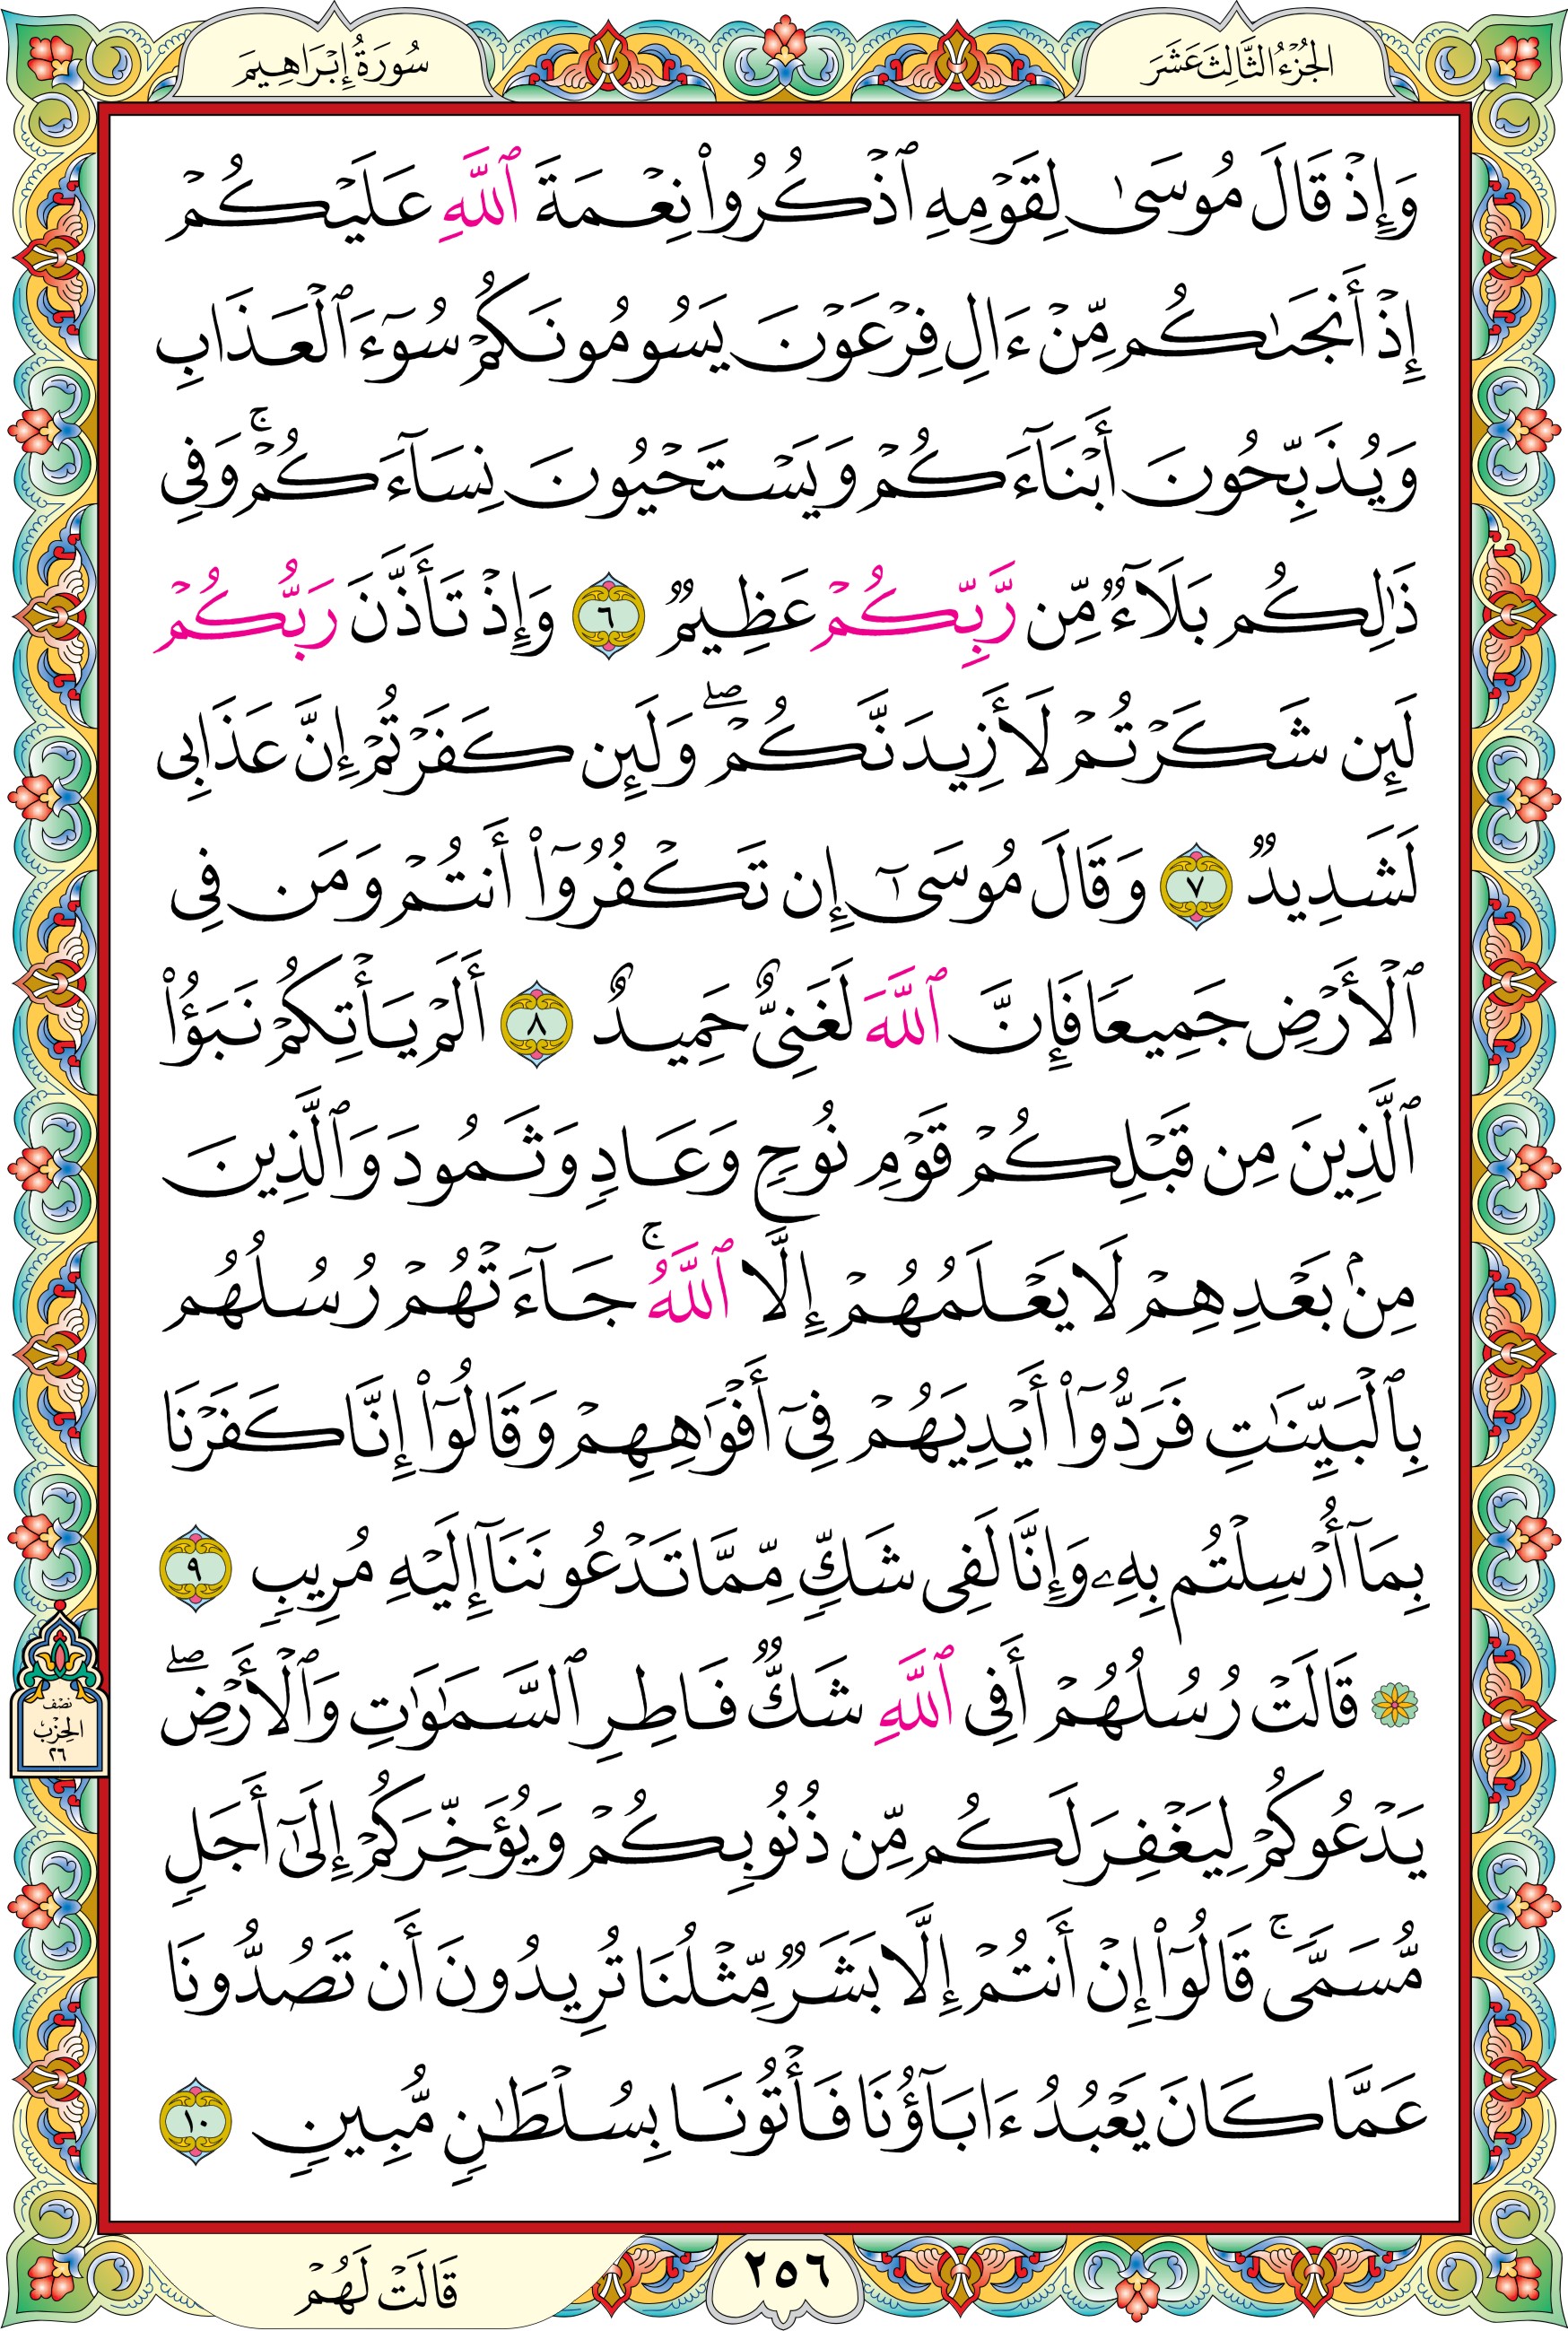 الجُزْءُ الثَّالِثَ عَشَرَ
سُورَةُ إِبْرَاهِيمَ
وَإِذْ قَالَ مُوسَىٰ لِقَوْمِهِ ٱذْكُرُوا۟ نِعْمَةَ ٱللَّهِ عَلَيْكُمْ
إِذْ أَنجَىٰكُم مِّنْ ءَالِ فِرْعَوْنَ يَسُومُونَكُمْ سُوٓءَ ٱلْعَذَابِ
وَيُذَبِّحُونَ أَبْنَآءَكُمْ وَيَسْتَحْيُونَ نِسَآءَكُمْ ۚ وَفِى
ذَٰلِكُم بَلَآءٌ مِّن رَّبِّكُمْ عَظِيمٌ ٦ وَإِذْ تَأَذَّنَ رَبُّكُمْ
لَئِن شَكَرْتُمْ لَأَزِيدَنَّكُمْ ۖ وَلَئِن كَفَرْتُمْ إِنَّ عَذَابِى
لَشَدِيدٌ ٧ وَقَالَ مُوسَىٰٓ إِن تَكْفُرُوٓا۟ أَنتُمْ وَمَن فِى
ٱلْأَرْضِ جَمِيعًا فَإِنَّ ٱللَّهَ لَغَنِىٌّ حَمِيدٌ ٨ أَلَمْ يَأْتِكُمْ نَبَؤُا۟
ٱلَّذِينَ مِن قَبْلِكُمْ قَوْمِ نُوحٍ وَعَادٍ وَثَمُودَ وَٱلَّذِينَ
مِنۢ بَعْدِهِمْ لَا يَعْلَمُهُمْ إِلَّا ٱللَّهُ ۚ جَآءَتْهُمْ رُسُلُهُم
بِٱلْبَيِّنَٰتِ فَرَدُّوٓا۟ أَيْدِيَهُمْ فِىٓ أَفْوَٰهِهِمْ وَقَالُوٓا۟ إِنَّا كَفَرْنَا
بِمَآ أُرْسِلْتُم بِهِۦ وَإِنَّا لَفِى شَكٍّ مِّمَّا تَدْعُونَنَآ إِلَيْهِ مُرِيبٍ ٩
۞ قَالَتْ رُسُلُهُمْ أَفِى ٱللَّهِ شَكٌّ فَاطِرِ ٱلسَّمَٰوَٰتِ وَٱلْأَرْضِ ۖ
يَدْعُوكُمْ لِيَغْفِرَ لَكُم مِّن ذُنُوبِكُمْ وَيُؤَخِّرَكُمْ إِلَىٰٓ أَجَلٍ
مُّسَمًّى ۚ قَالُوٓا۟ إِنْ أَنتُمْ إِلَّا بَشَرٌ مِّثْلُنَا تُرِيدُونَ أَن تَصُدُّونَا
عَمَّا كَانَ يَعْبُدُ ءَابَآؤُنَا فَأْتُونَا بِسُلْطَٰنٍ مُّبِينٍ ١٠
نصْف
الحِزْب
٢٦
٢٥٦
قَالَتْ لَهُمْ